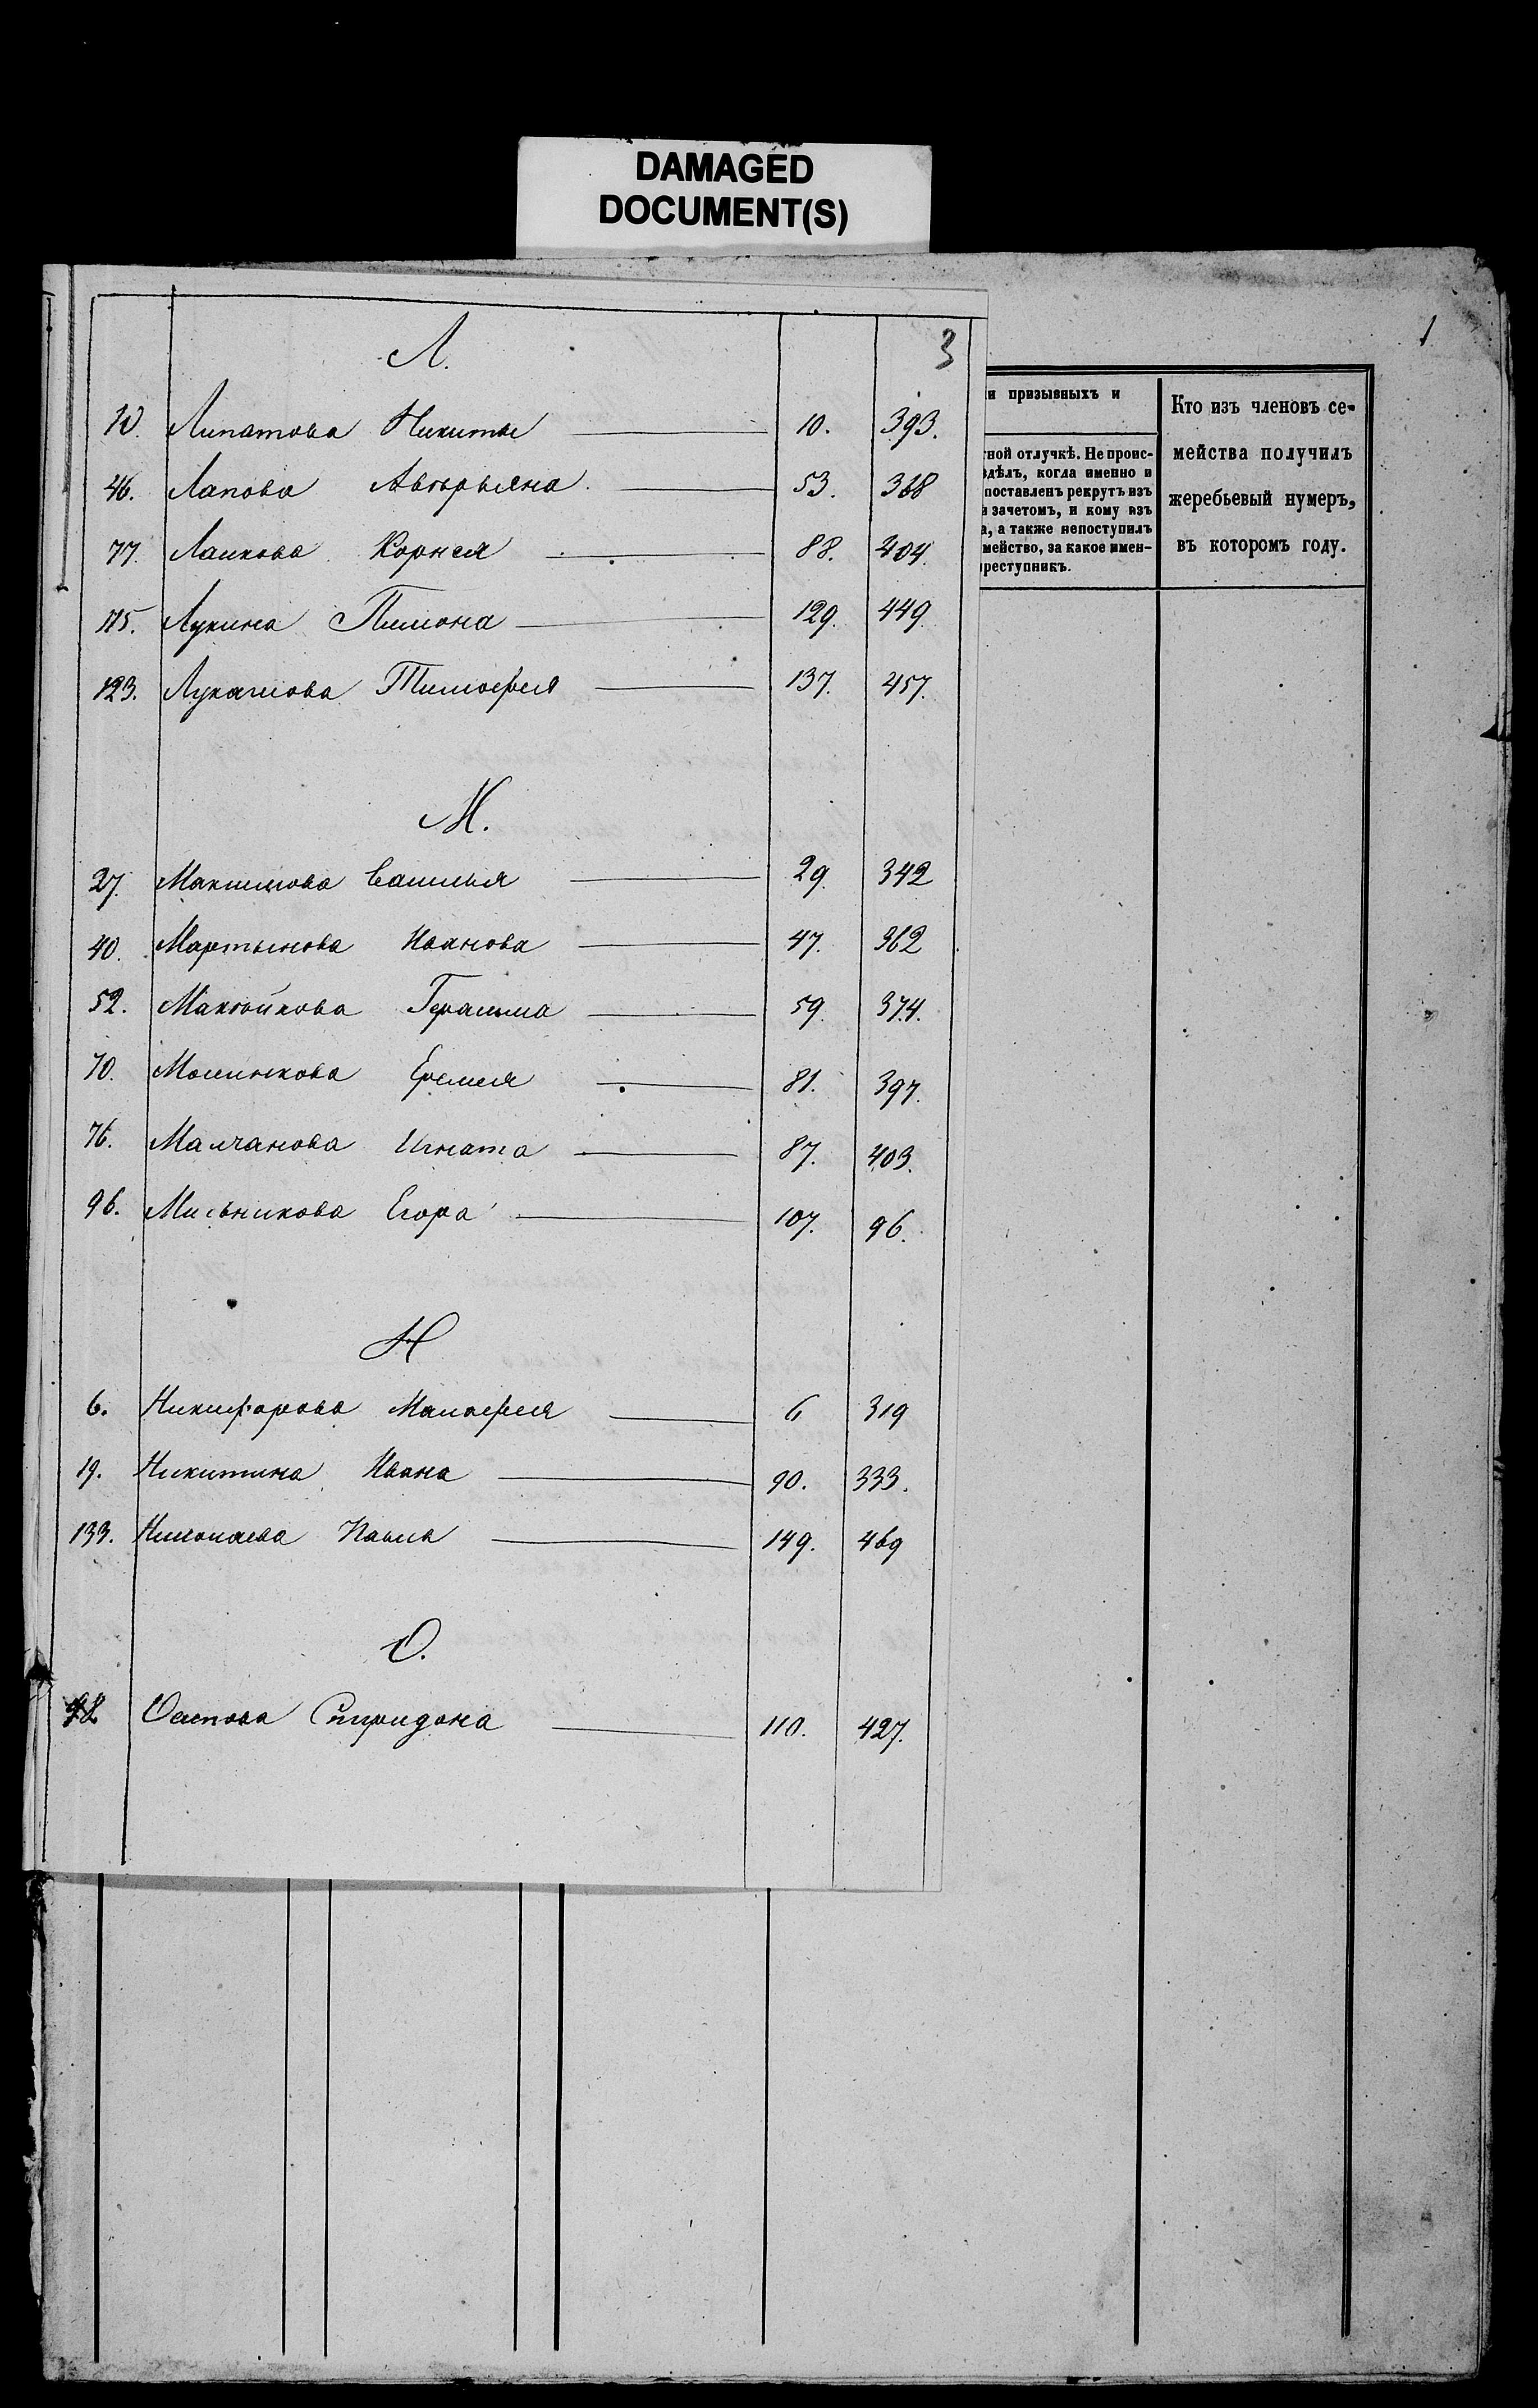 DAMAGED
DOCUMENT(S)
1
3
Л.
10. Липатова Никиты 10. 393.
46. Лапова 53. 368
77. Лаикова Корнея 88. 404.
115. Лукина Пимона 129. 449
123. Лукашова Тимофея 137. 457.
М.
27. Максимова Василья 29. 342
40. Мартынова Иванова 47. 362
52. Герасима 59. 374.
70. Еремея 81. 397.
76. Малчанова Игната 87. 403.
96. Мильникова Егора 107. 96.
Н
6. Никифорова 6 319
19. Никитина Ивана 90. 333.
133. Николаева Павла 149. 469
О.
98. Осипова Спиридона 110. 427.
и призывныхъ и
тной отлучкѣ. Не проис-
здѣлъ, когда именно и
поставленъ рекрутъ изъ
и зачетомъ, и кому изъ
а, а также непоступилъ
мейство, за какое имен-
реступникъ.
Кто изъ членовъ се-
мейства получилъ
жеребьевый нумеръ,
въ которомъ году.